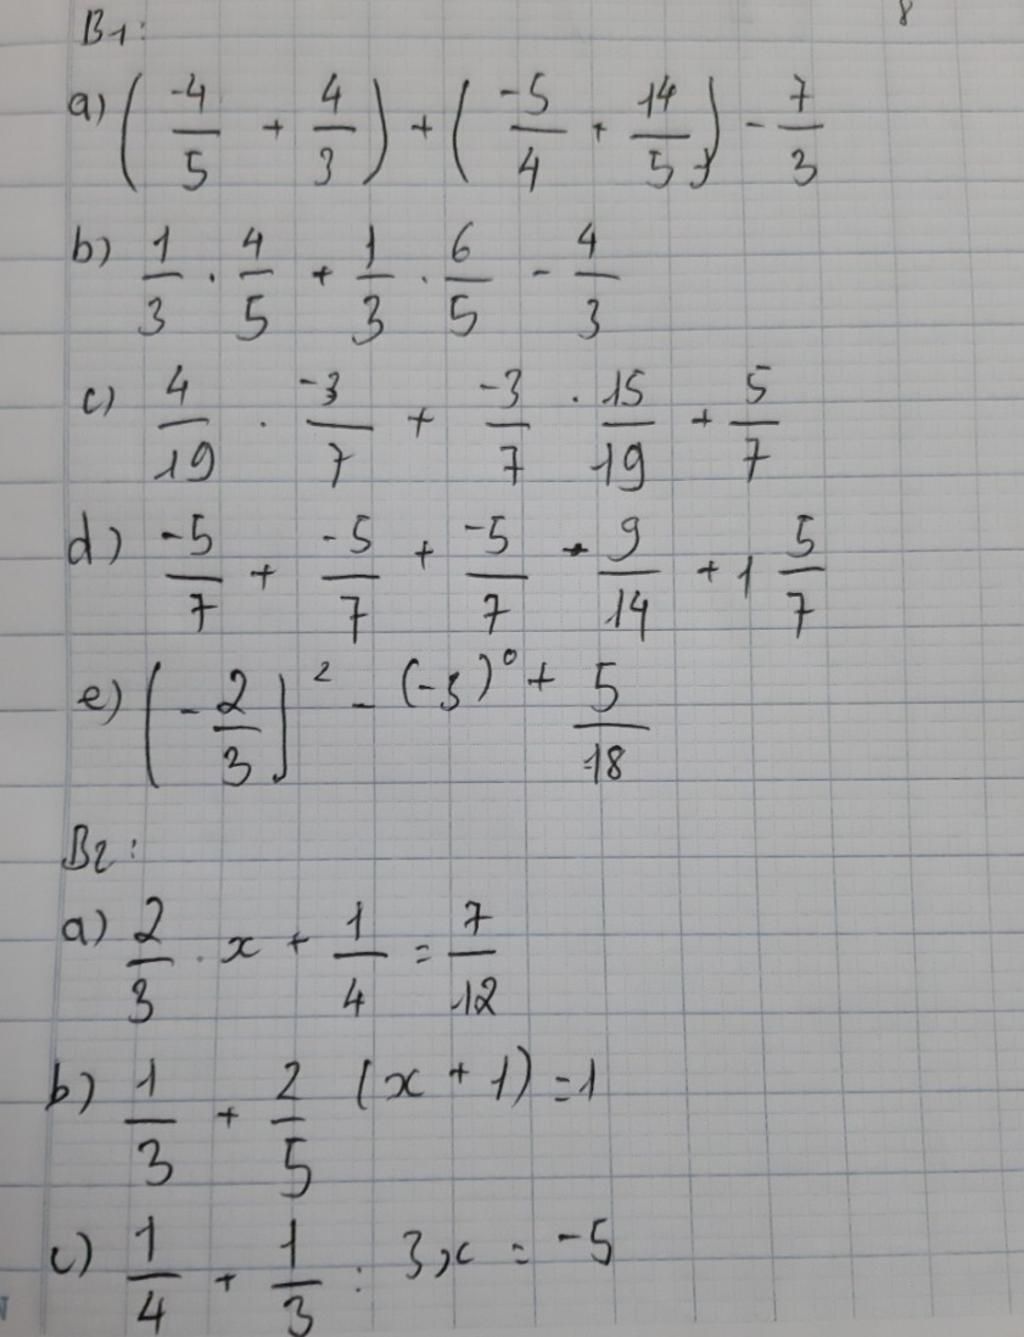 8
B1:
a) (-4/5 + 4/3) + (-5/4 + 14/5) - 7/3
b) 1/3 . 4/5 + 1/3 . 6/5 - 4/3
c) 4/19 . -3/7 + -3/7 . 15/19 + 5/7
d) -5/7 + -5/7 + -5/7 - 9/14 + 1 5/7
e) (-2/3)² - (-3)⁰ + 5/18
B2:
a) 2/3 . x + 1/4 = 7/12
b) 1/3 + 2/5 (x + 1) = 1
c) 1/4 + 1/3 : 3x = -5